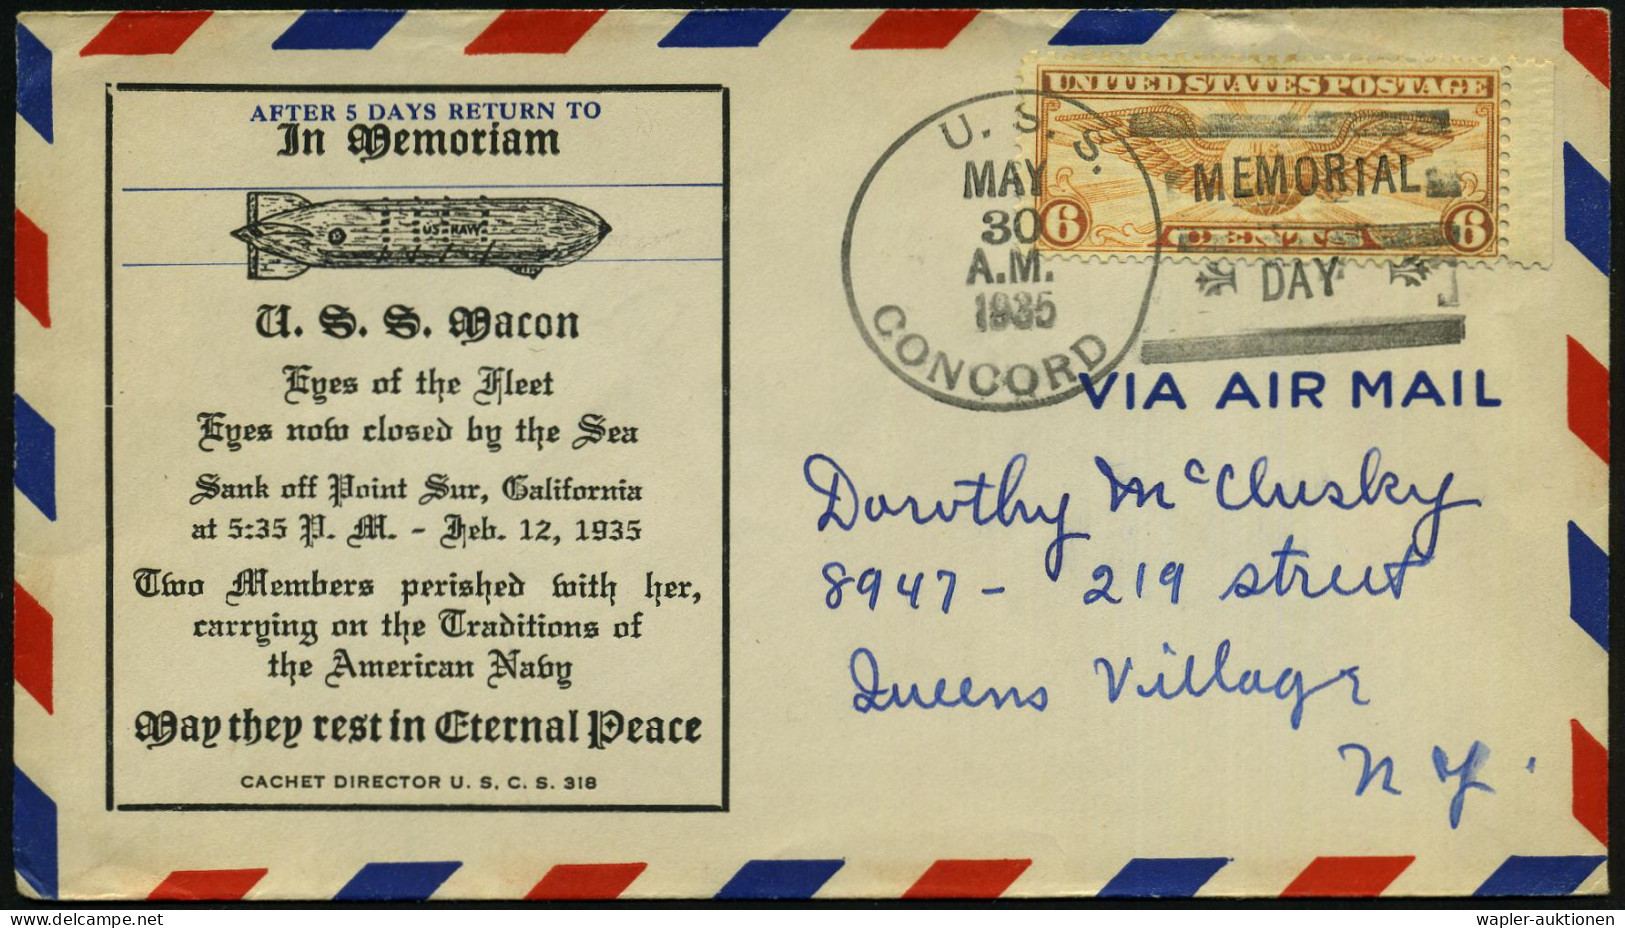 AFTER 5 DAYS RETURN TO
In Memoriam
US NAVY
U. S. S. Macon
Eyes of the Fleet
Eyes now closed by the Sea
Sank off Point Sur, California
at 5:35 P. M. - Feb. 12, 1935
Two Members perished with her,
carrying on the Traditions of
the American Navy
May they rest in Eternal Peace
CACHET DIRECTOR U. S. C. S. 318
U. S. S.
MAY
30
A.M.
1935
CONCORD
UNITED STATES POSTAGE
6 CENTS 6
MEMORIAL
DAY
VIA AIR MAIL
Dorothy McClusky
8947 - 219 street
Queens Village
N Y.
delcampe.net
wapler-auktionen